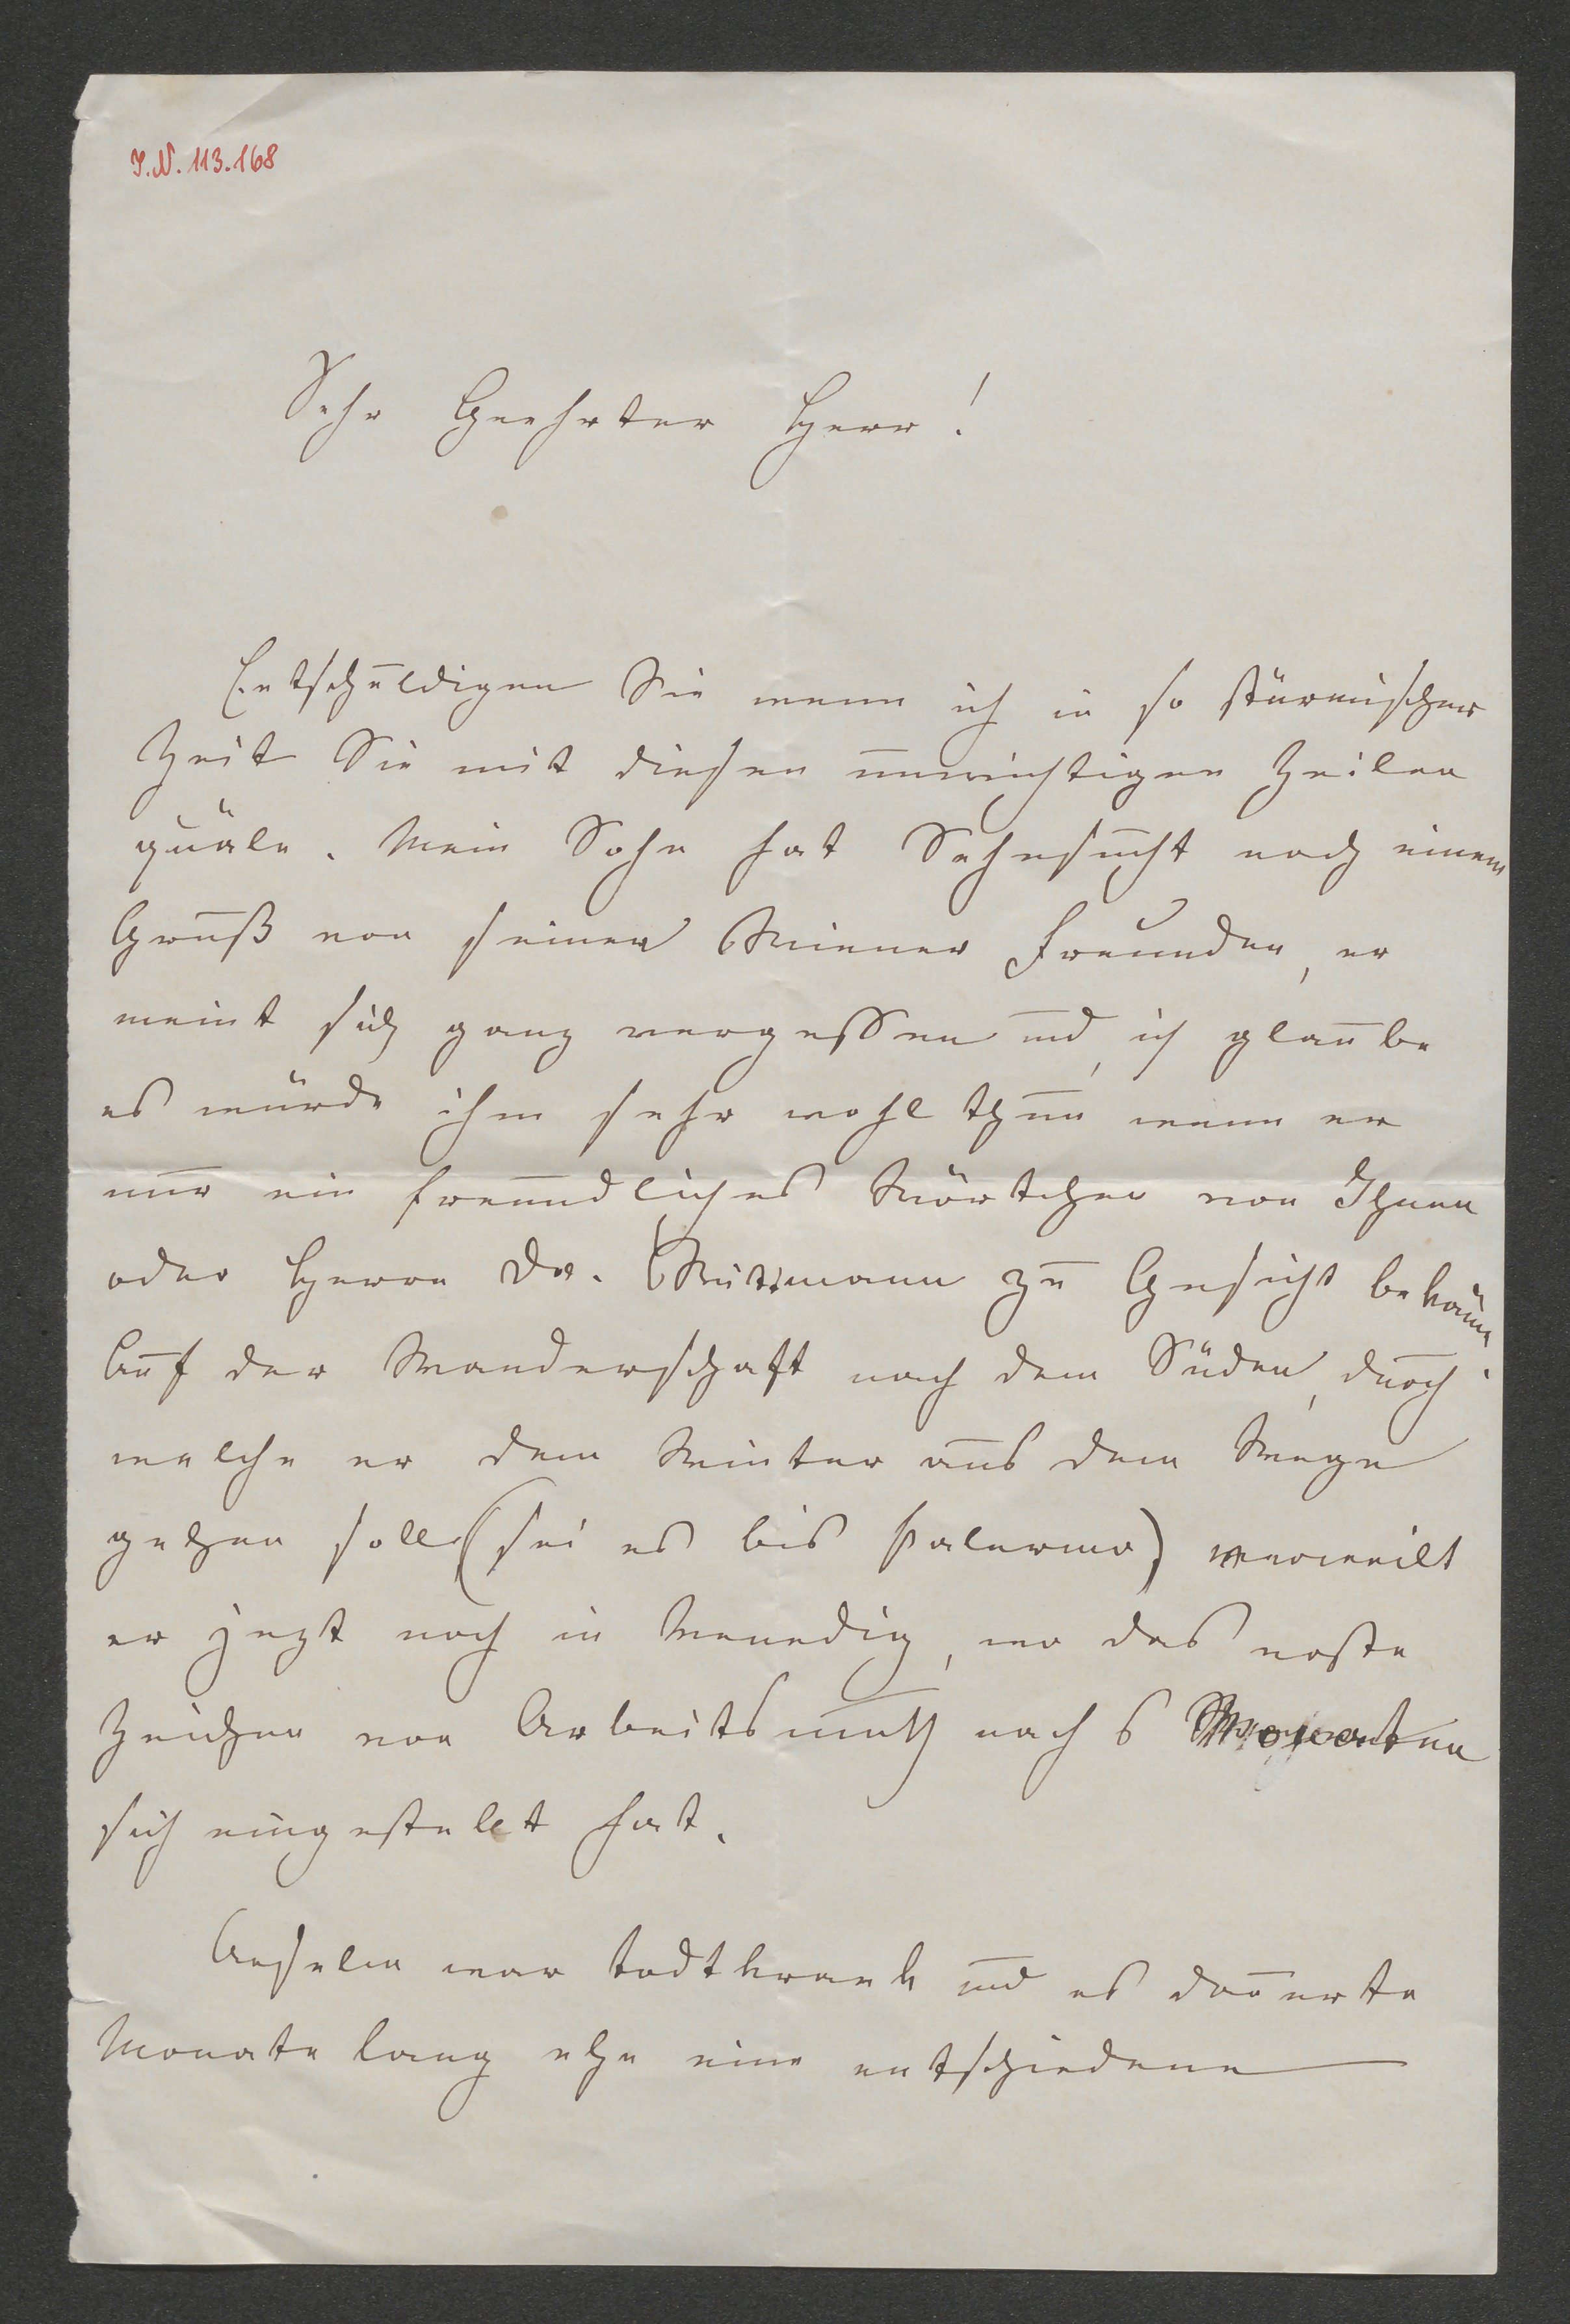 I.N. 113.168
Sehr Geehrter Herr!
Entschuldigen Sie wenn ich in so stürmischer
Zeit Sie mit diesen unwichtigen Zeilen
quäle. Mein Sohn hat Sehnsucht nach einem
Gruß von seinen Wiener Freunden, er
meint sich ganz vergessen und, ich glaube
es würde ihm sehr wohl thun wenn er
nur ein freundliches Wörtchen von Ihnen
oder Herrn Dr. zu Gesicht bekäme.
Auf der Wanderschaft nach dem Süden, durch
welche er dem Winter aus dem Wege
gehen soll (sei es bis Palermo) verweilt
er jezt noch in Venedig, wo das erste
Zeichen von Arbeitsmuth nach 6 Monaten
sich eingestellt hat.
Anselm war todtkrank und es dauerte
Monate lang ehe eine entschiedene